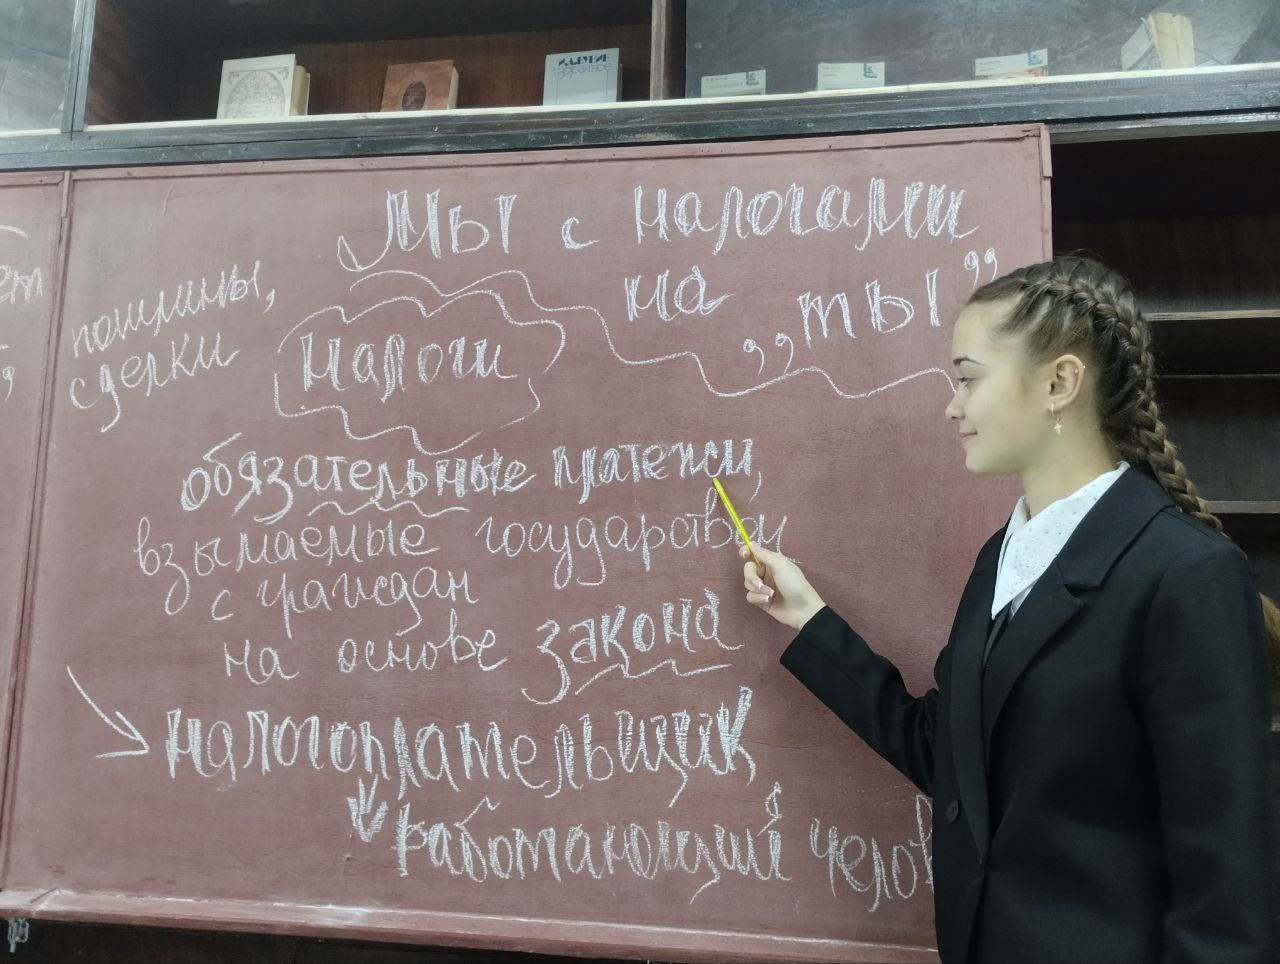 Мы с налогами
на „ты”
пошлины,
сделки
Налоги
обязательные платежи,
взымаемые государством
с граждан
на основе закона
налогоплательщик
работающий
избранное